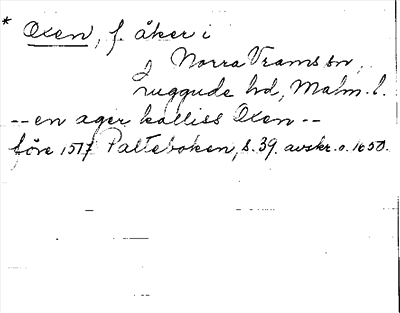 * Oxen, f. åker i
Norra Vrams sn,
Luggude hd, Malm. l.
-- en ager kalliss Oxen --
före 1517 Palteboken, s. 39. avskr. o. 1650.